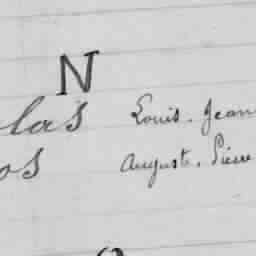 N
las Louis. Jean
os Auguste. Pierre